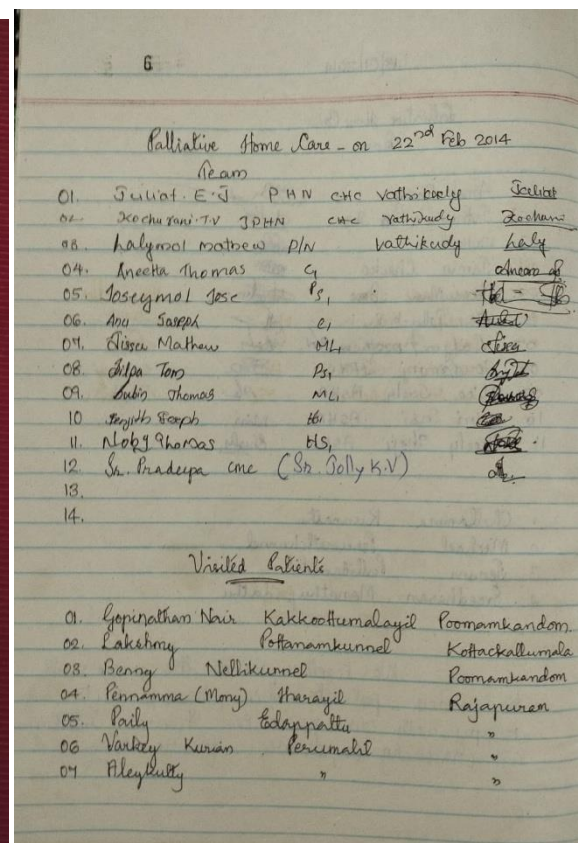 6
Palliative Home Care - on 22nd Feb 2014
Team
01. Juliat. E.J PHN CHC Vathikudy Juliat
02. Kochurani. T.V JPHN CHC Vathikudy Kochurani
03. Lalymol mathew P/N Vathikudy Laly
04. Aneetta Thomas
05. Joseymol Jose Ps1
06. Anu Joseph
07. Mathew ML1
08. Silpa Tom Ps1
09. Subin Thomas ML1
10 Renjith Joseph
11. Noby Thomas HS1
12 Sr. Pradeepa cmc (Sr. Jolly K.V)
13.
14.
Visited Patients
01. Gopinathan Nair Kakkoottumalayil Poomamkandom.
02. Lakshmy Pottanamkunnel Kottackallumala
03. Benny Nellikunnel Poomamkandom
04. Pennamma (Mony) Tharayil Rajapuram
05. Paily Edappattu "
06 Varkey Kurian Perumalil "
07 Aleykutty " "